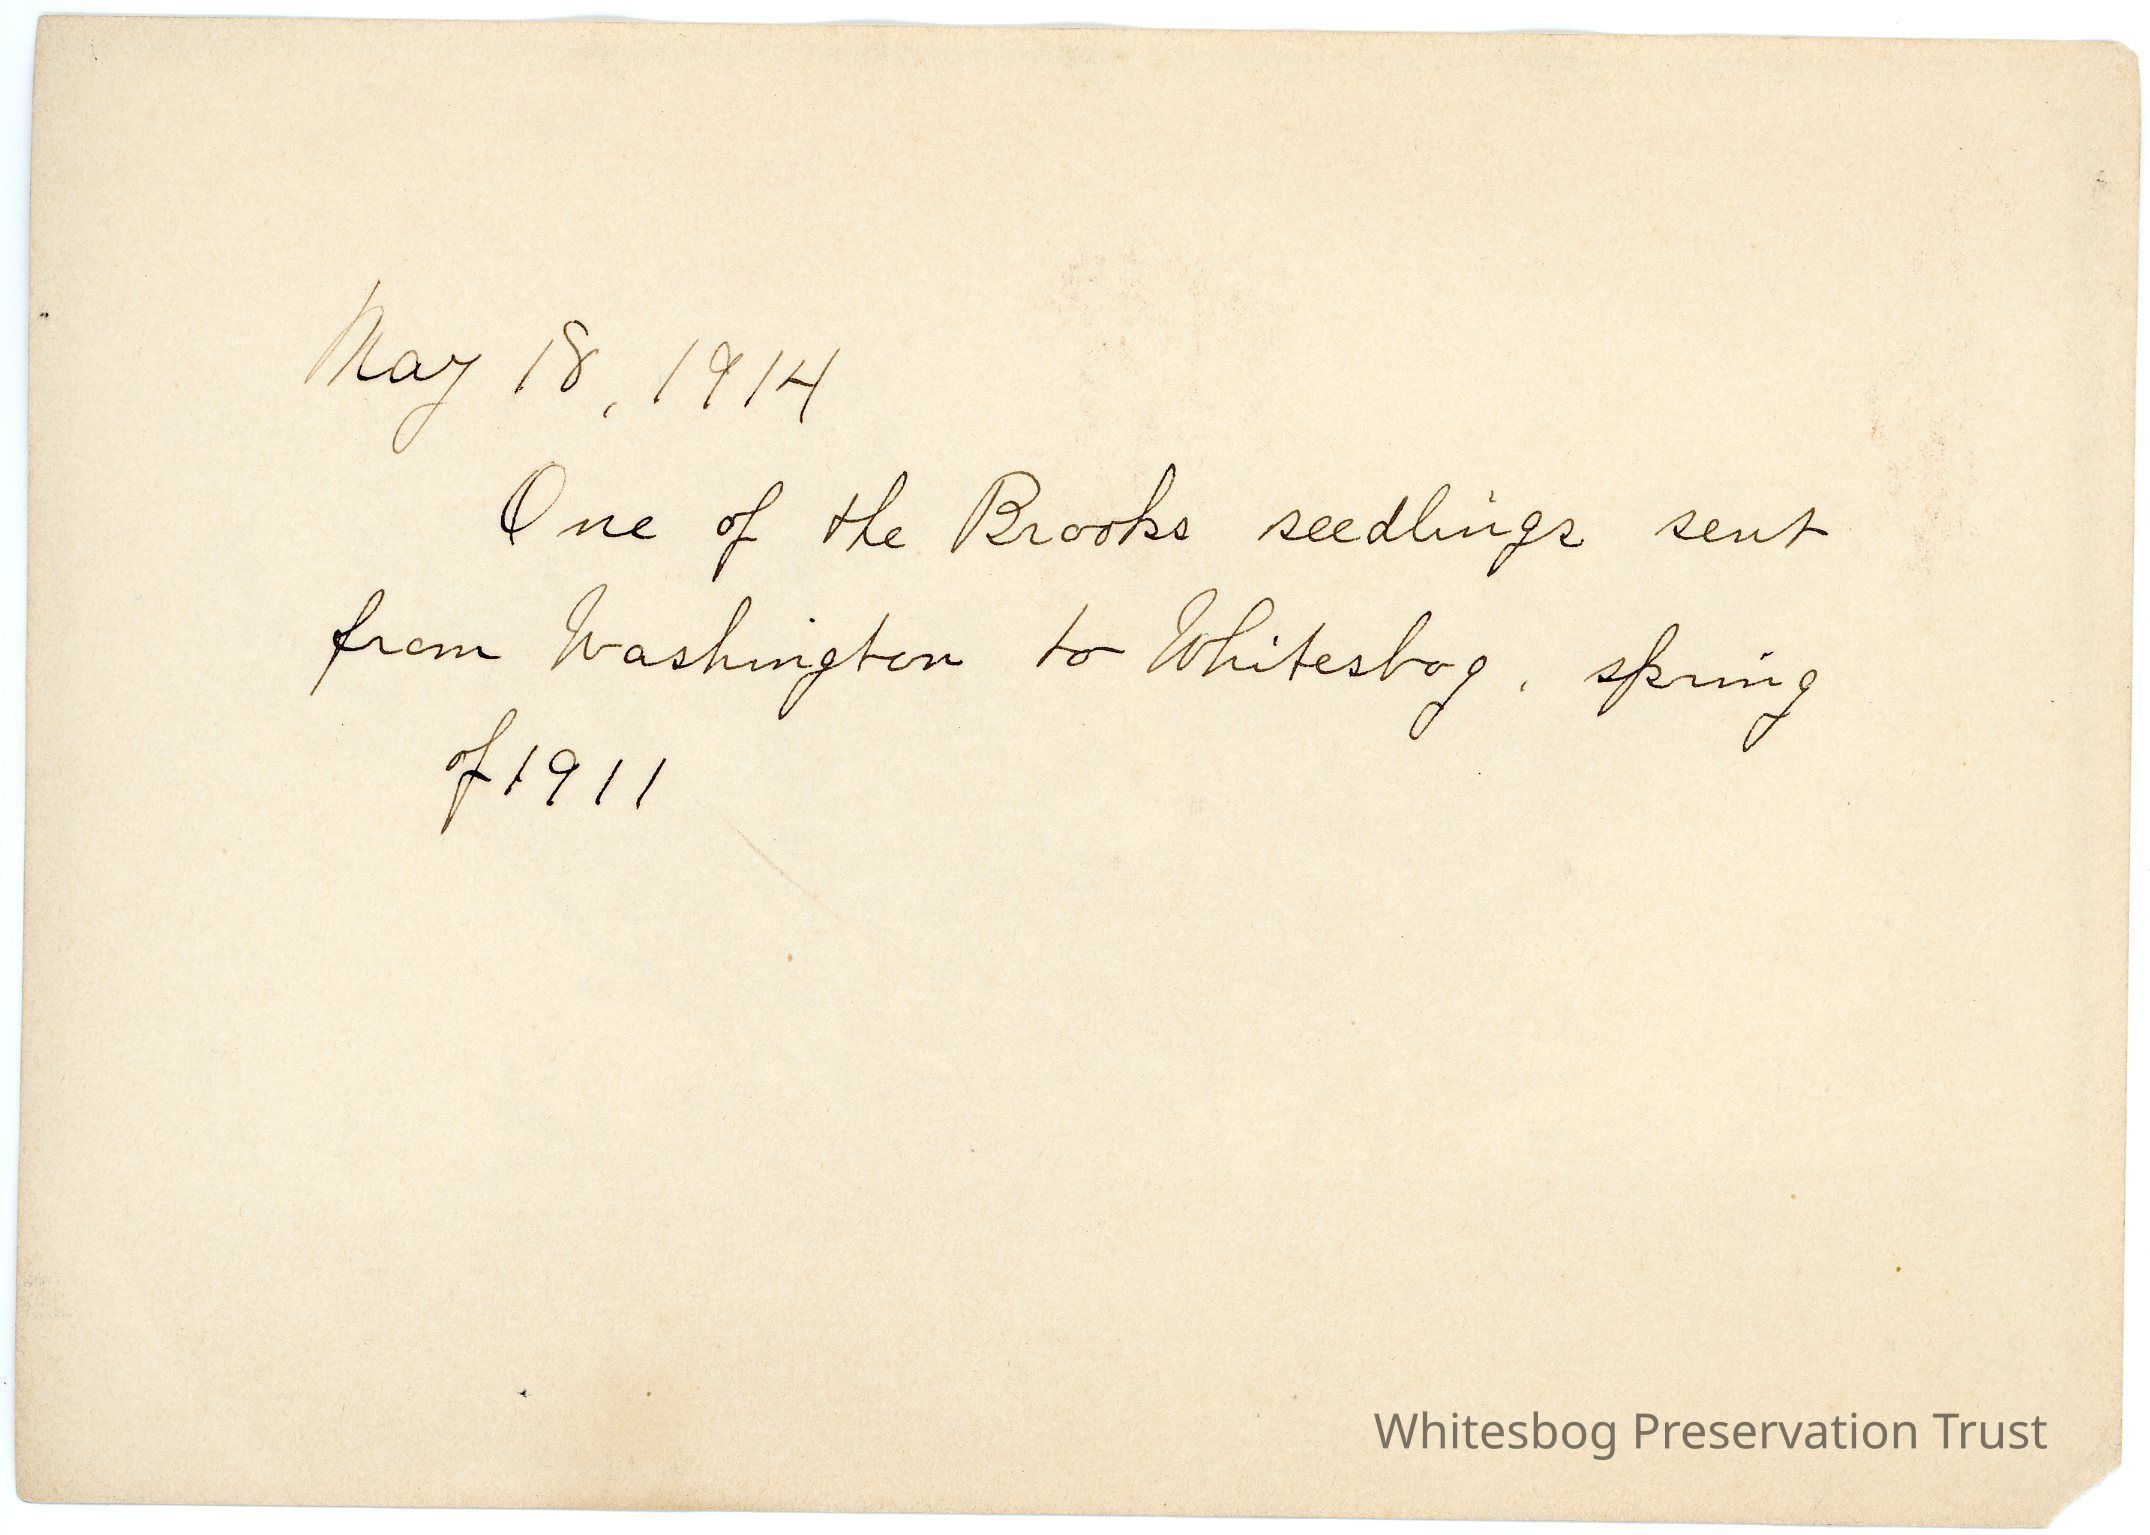 May 18, 1914
One of the Brooks seedlings sent
from Washington to Whitesbog, spring
of 1911
Whitesbog Preservation Trust